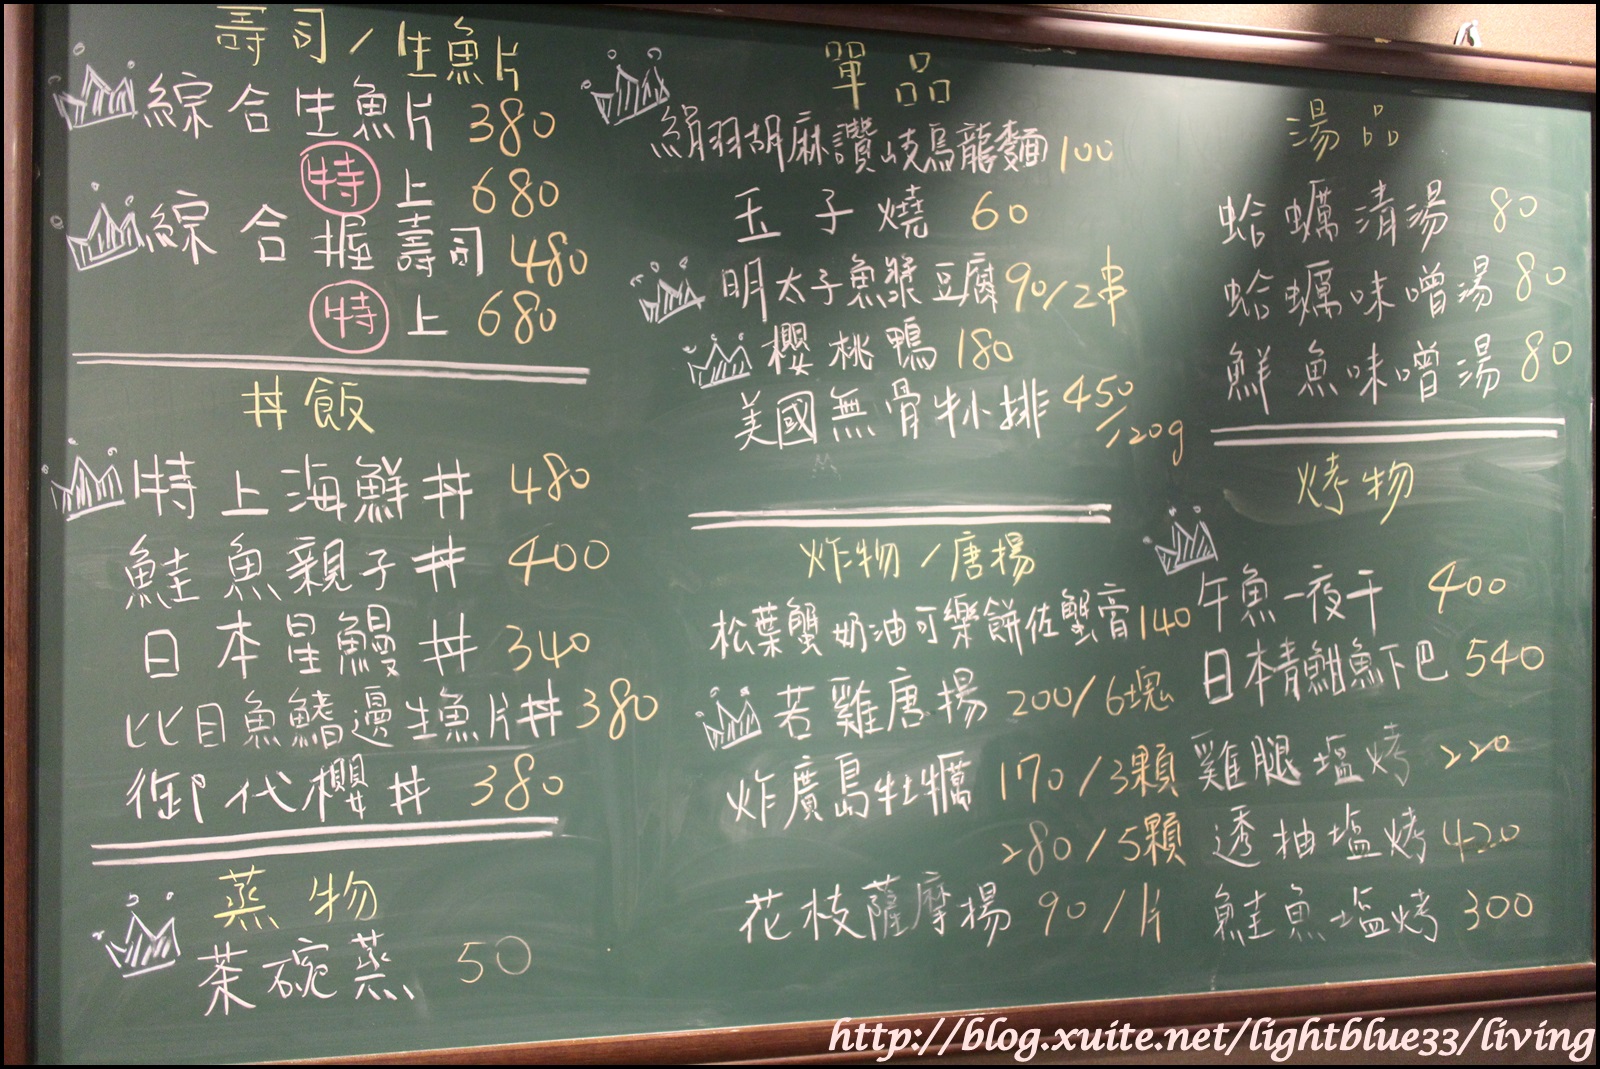 壽司/生魚片
綜合生魚片 380
特上 680
綜合握壽司 480
特上 680
丼飯
特上海鮮丼 480
鮭魚親子丼 400
日本星鰻丼 340
比目魚鰭邊生魚片丼 380
御代櫻丼 380
蒸物
茶碗蒸 50
單品
絹羽胡麻讚岐烏龍麵 100
玉子燒 60
明太子魚漿豆腐 90/2串
櫻桃鴨 180
美國無骨牛小排 450/120g
炸物/唐揚
松葉蟹奶油可樂餅佐蟹膏 140
若雞唐揚 200/6塊
炸廣島牡蠣 170/3顆
280/5顆
花枝薩摩揚 90/片
湯品
蛤蠣清湯 80
蛤蠣味噌湯 80
鮮魚味噌湯 80
烤物
午魚一夜干 400
日本青魽魚下巴 540
雞腿塩烤 220
透抽塩烤 420
鮭魚塩烤 300
http://blog.xuite.net/lightblue33/living